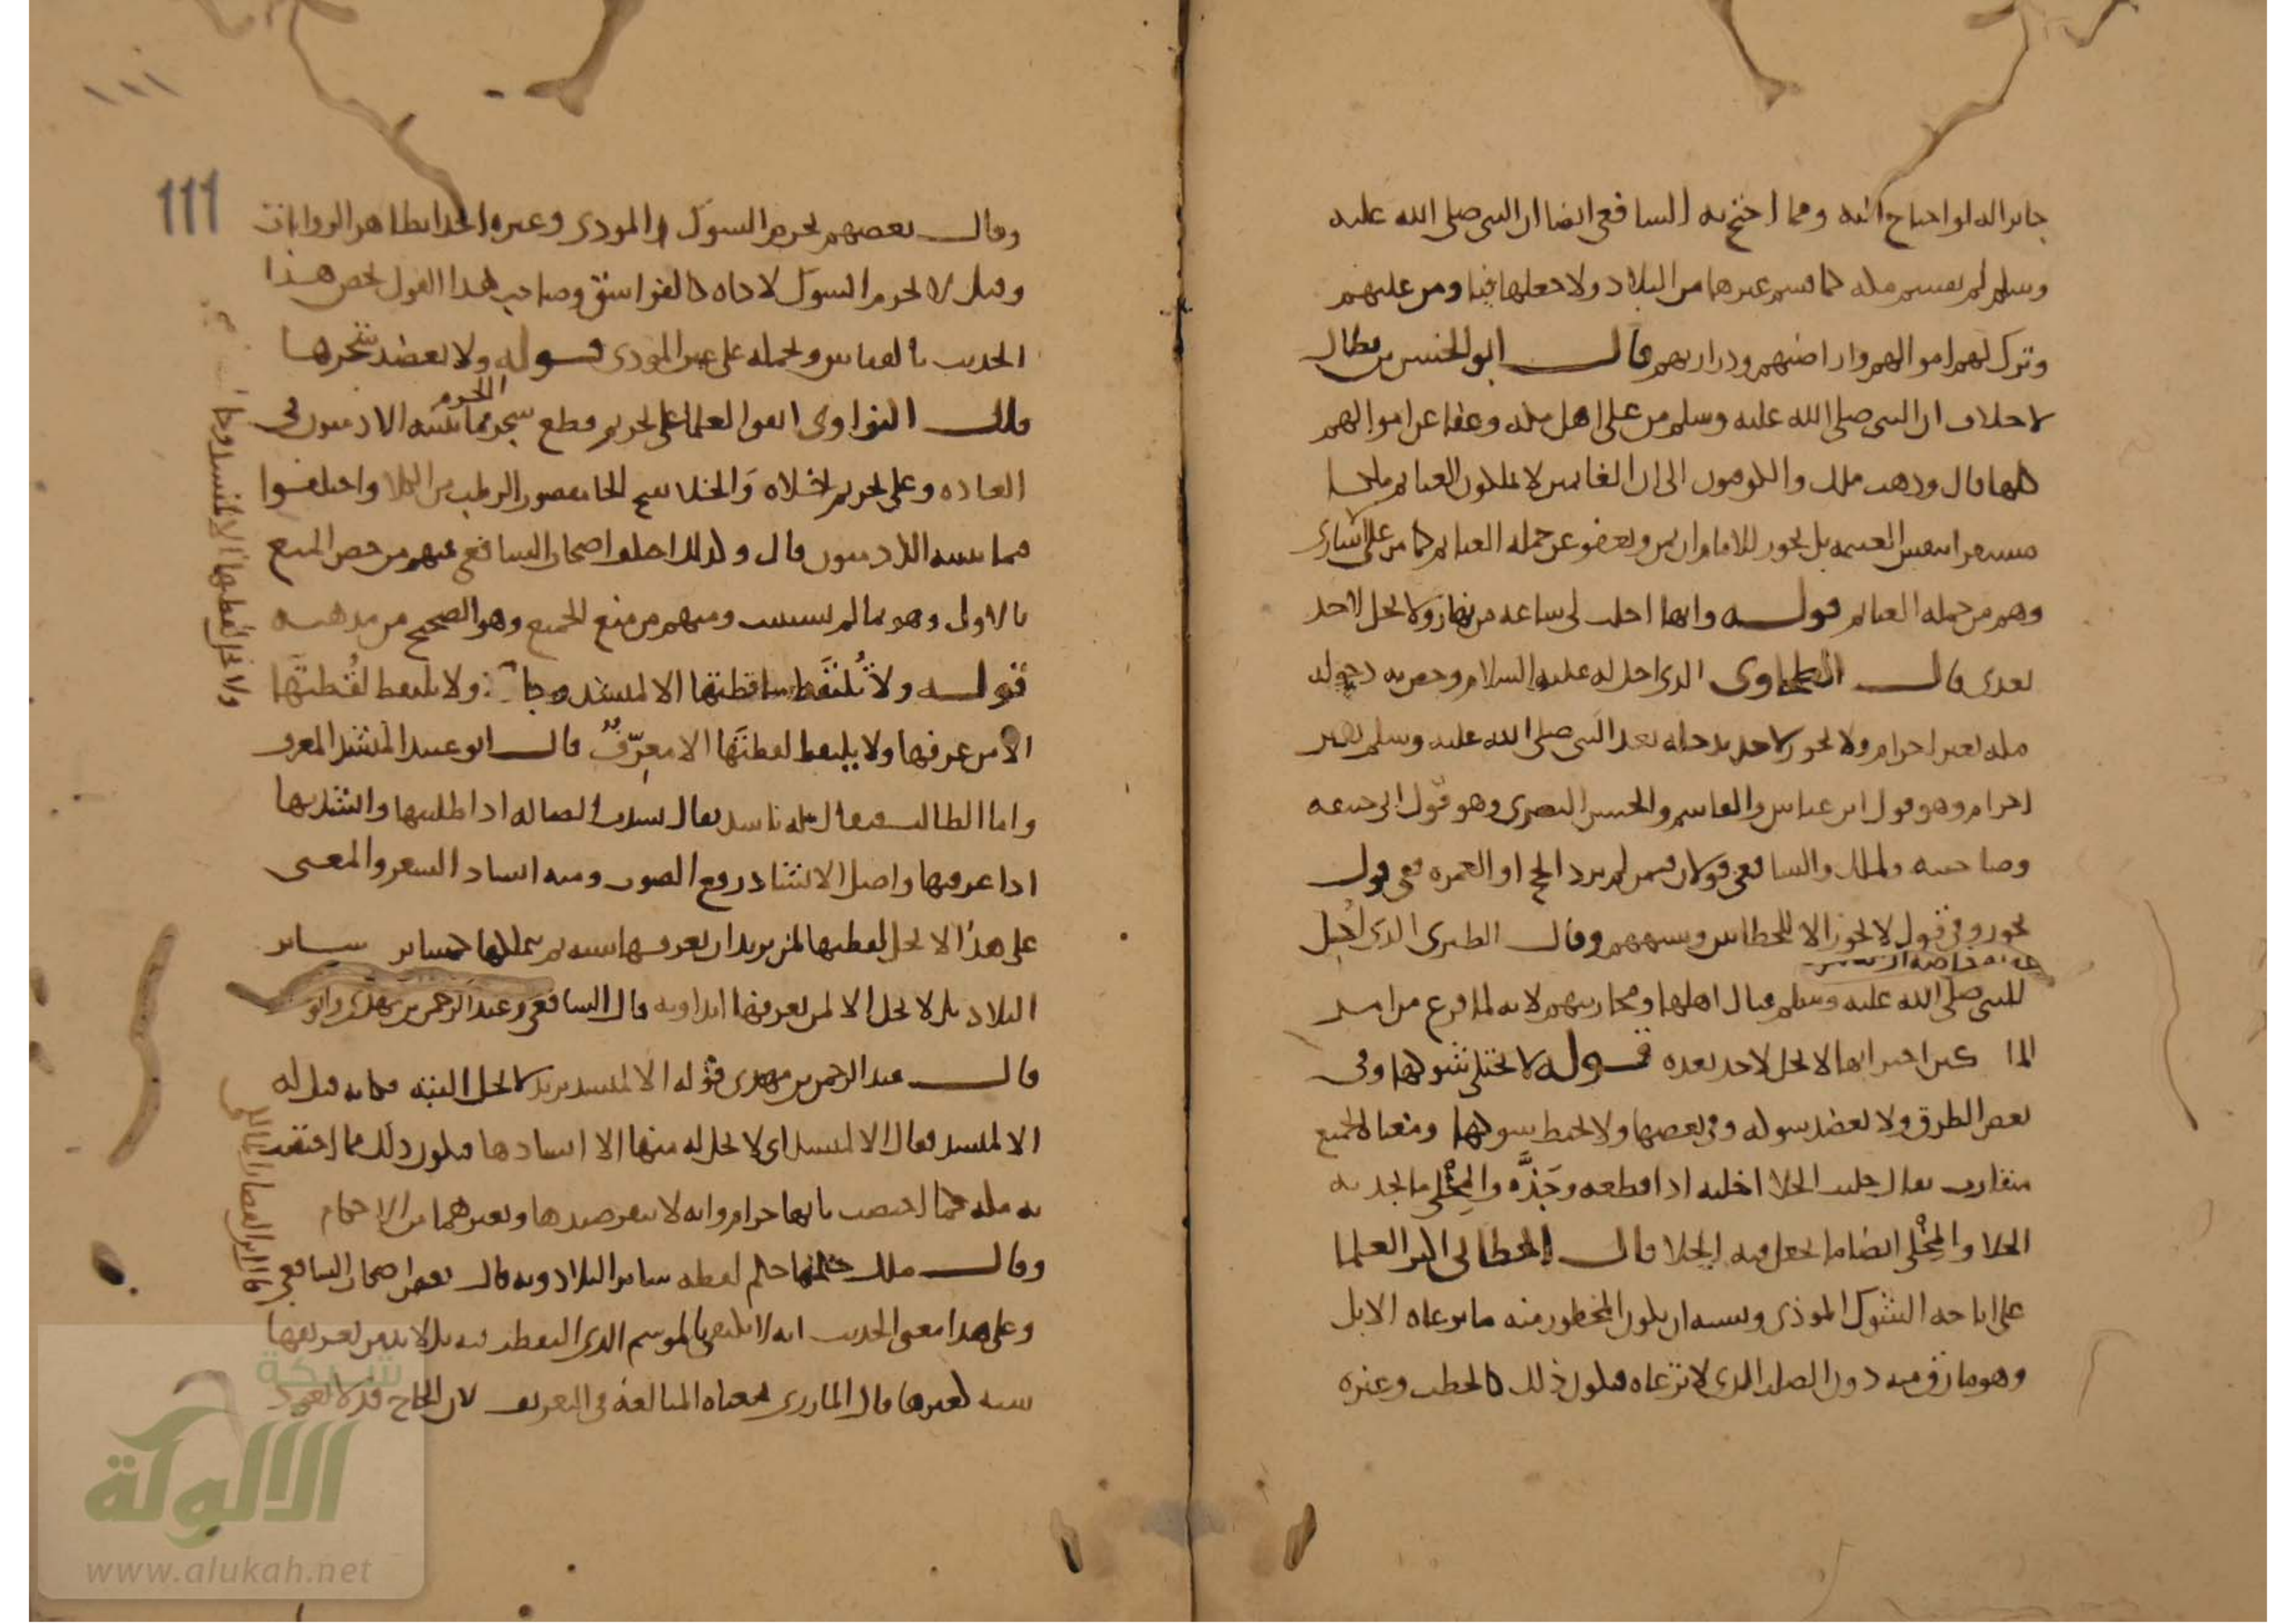 جايز اله لو احتاج اليه ومما احتج به الشافعي ايضا ان النبي صلى الله عليه
وسلم لم يقسم مكه كما قسم غيرها من البلاد ولا جعلها فيا ومن عليهم
وترك لهم اموالهم واراضيهم وذراريهم قال ابو الحسن بن بطال
لا خلاف ان النبي صلى الله عليه وسلم من على اهل مكه وعفا عن اموالهم
كلها قال وذهب ملك والكوفيون الى ان الغانمين لا يملكون الغنايم ملكا
مستقرا بنفس الغنيمه بل يجوز للامام ان يمن ويعفو عن جمله الغنايم كما من على الاسارى
وهم من جمله الغنايم قوله وانها احلت لي ساعه من نهار ولا تحل لاحد
بعدي قال الطحاوي الذي احل له عليه السلام وخص به دخوله
مكه بغير احرام ولا يجوز لاحد يدخله بعد النبي صلى الله عليه وسلم بغير
احرام وهو قول ابن عباس والقاسم والحسن البصري وهو قول ابي حنيفه
وصاحبيه ولملك والشافعي قولان فيمن لم يرد الحج او العمره ففي قول
يجوز وفي قول لا يجوز الا للحطابين وشبههم وقال الطبري الذي احل
للنبي صلى الله عليه وسلم قتال اهلها ومحاربتهم لانه لما فرع من امر
اخبر انها لا تحل لاحد بعده قوله لا يختلى شوكها وفي
بعض الطرق ولا يعضد شوكه وفي بعضها ولا يخبط شوكها ومعناه الجميع
متقارب يقال خليت الخلا اخليه اذا قطعه وجذّه والمِخْلى ما يجذ به
الخلا والمِخْلى ايضا ما يجعل فيه الخلا قال الخطابي اكثر العلما
على اباحه الشوك الموذي ويشبه ان يكون المحظور منه ما يرعاه الابل
وهو ما رق منه دون الصلب الذي لا ترعاه فيكون ذلك كالحطب وغيره
١١١
111
وقال بعضهم يحرم الشوك المودي وغيره اخذا بظاهر الروايات
وقيل لا يحرم الشوك لاذاه كالفواسق وصاحب هذا القول يخص هذا
الحديث بالقياس ويحمله على غير المودي قوله ولا يعضد شجرها
النواوي اتفق العلما على تحريم قطع شجر الحرم مما ينبته الادميون في
العاده وعلى تحريم اختلاه وَالخلا بفتح الخا مقصور الرطب من الكلا واختلفوا
فيما ينبته الادميون قال وكذلك اختلف اصحاب الشافعي فمنهم من خص المنع
بالاول وهو ما لم يستنبت ومنهم من منع الجميع وهو الصحيح من مذهبه
قوله ولا تُلتقَط ساقطتها الا لمنشد وجا ولا يلتقط لُقُطتَها
الا من عرفها ولا يلتقط لقطتَها الا معرّفٌ قال ابو عبيد المنشد المعرف
واما الطالب فيقال له ناشد يقال نشدت الضاله اذا طلبتها وانشدتها
اذا عرفتها واصل الانشاد رفع الصوت ومنه انشاد الشعر والمعنى
على هذا لا تحل لقطتها لمن يريد ان يعرفها سنه ثم يتملكها كساير
البلاد بل لا تحل الا لمن يعرفها ابدا وبه قال الشافعي وعبد الرحمن بن مهدي وابو
قال عبد الرحمن بن مهدي قوله الا لمنشد يريد لا تحل البته فكانه قيل له
الا لمنشد فقال الا لمنشد اي لا تحل له منها الا انشادها فيكون ذلك مما اختصت
به مكه كما اختصت بانها حرام وانه لا ينفر صيدها وبغيرهما من الاحكام
وقال ملك حكمها حكم لقطه ساير البلاد وبه قال بعض اصحاب الشافعي
وعلى هذا معنى الحديث انه لا يكتفي بالموسم الذي التقطت فيه بل لا بد من تعريفها
سنه لغيرها قال المازري معناه المبالغه في التعريف لان الحاج قد لا يعود
شبكة
الألوكة
www.alukah.net